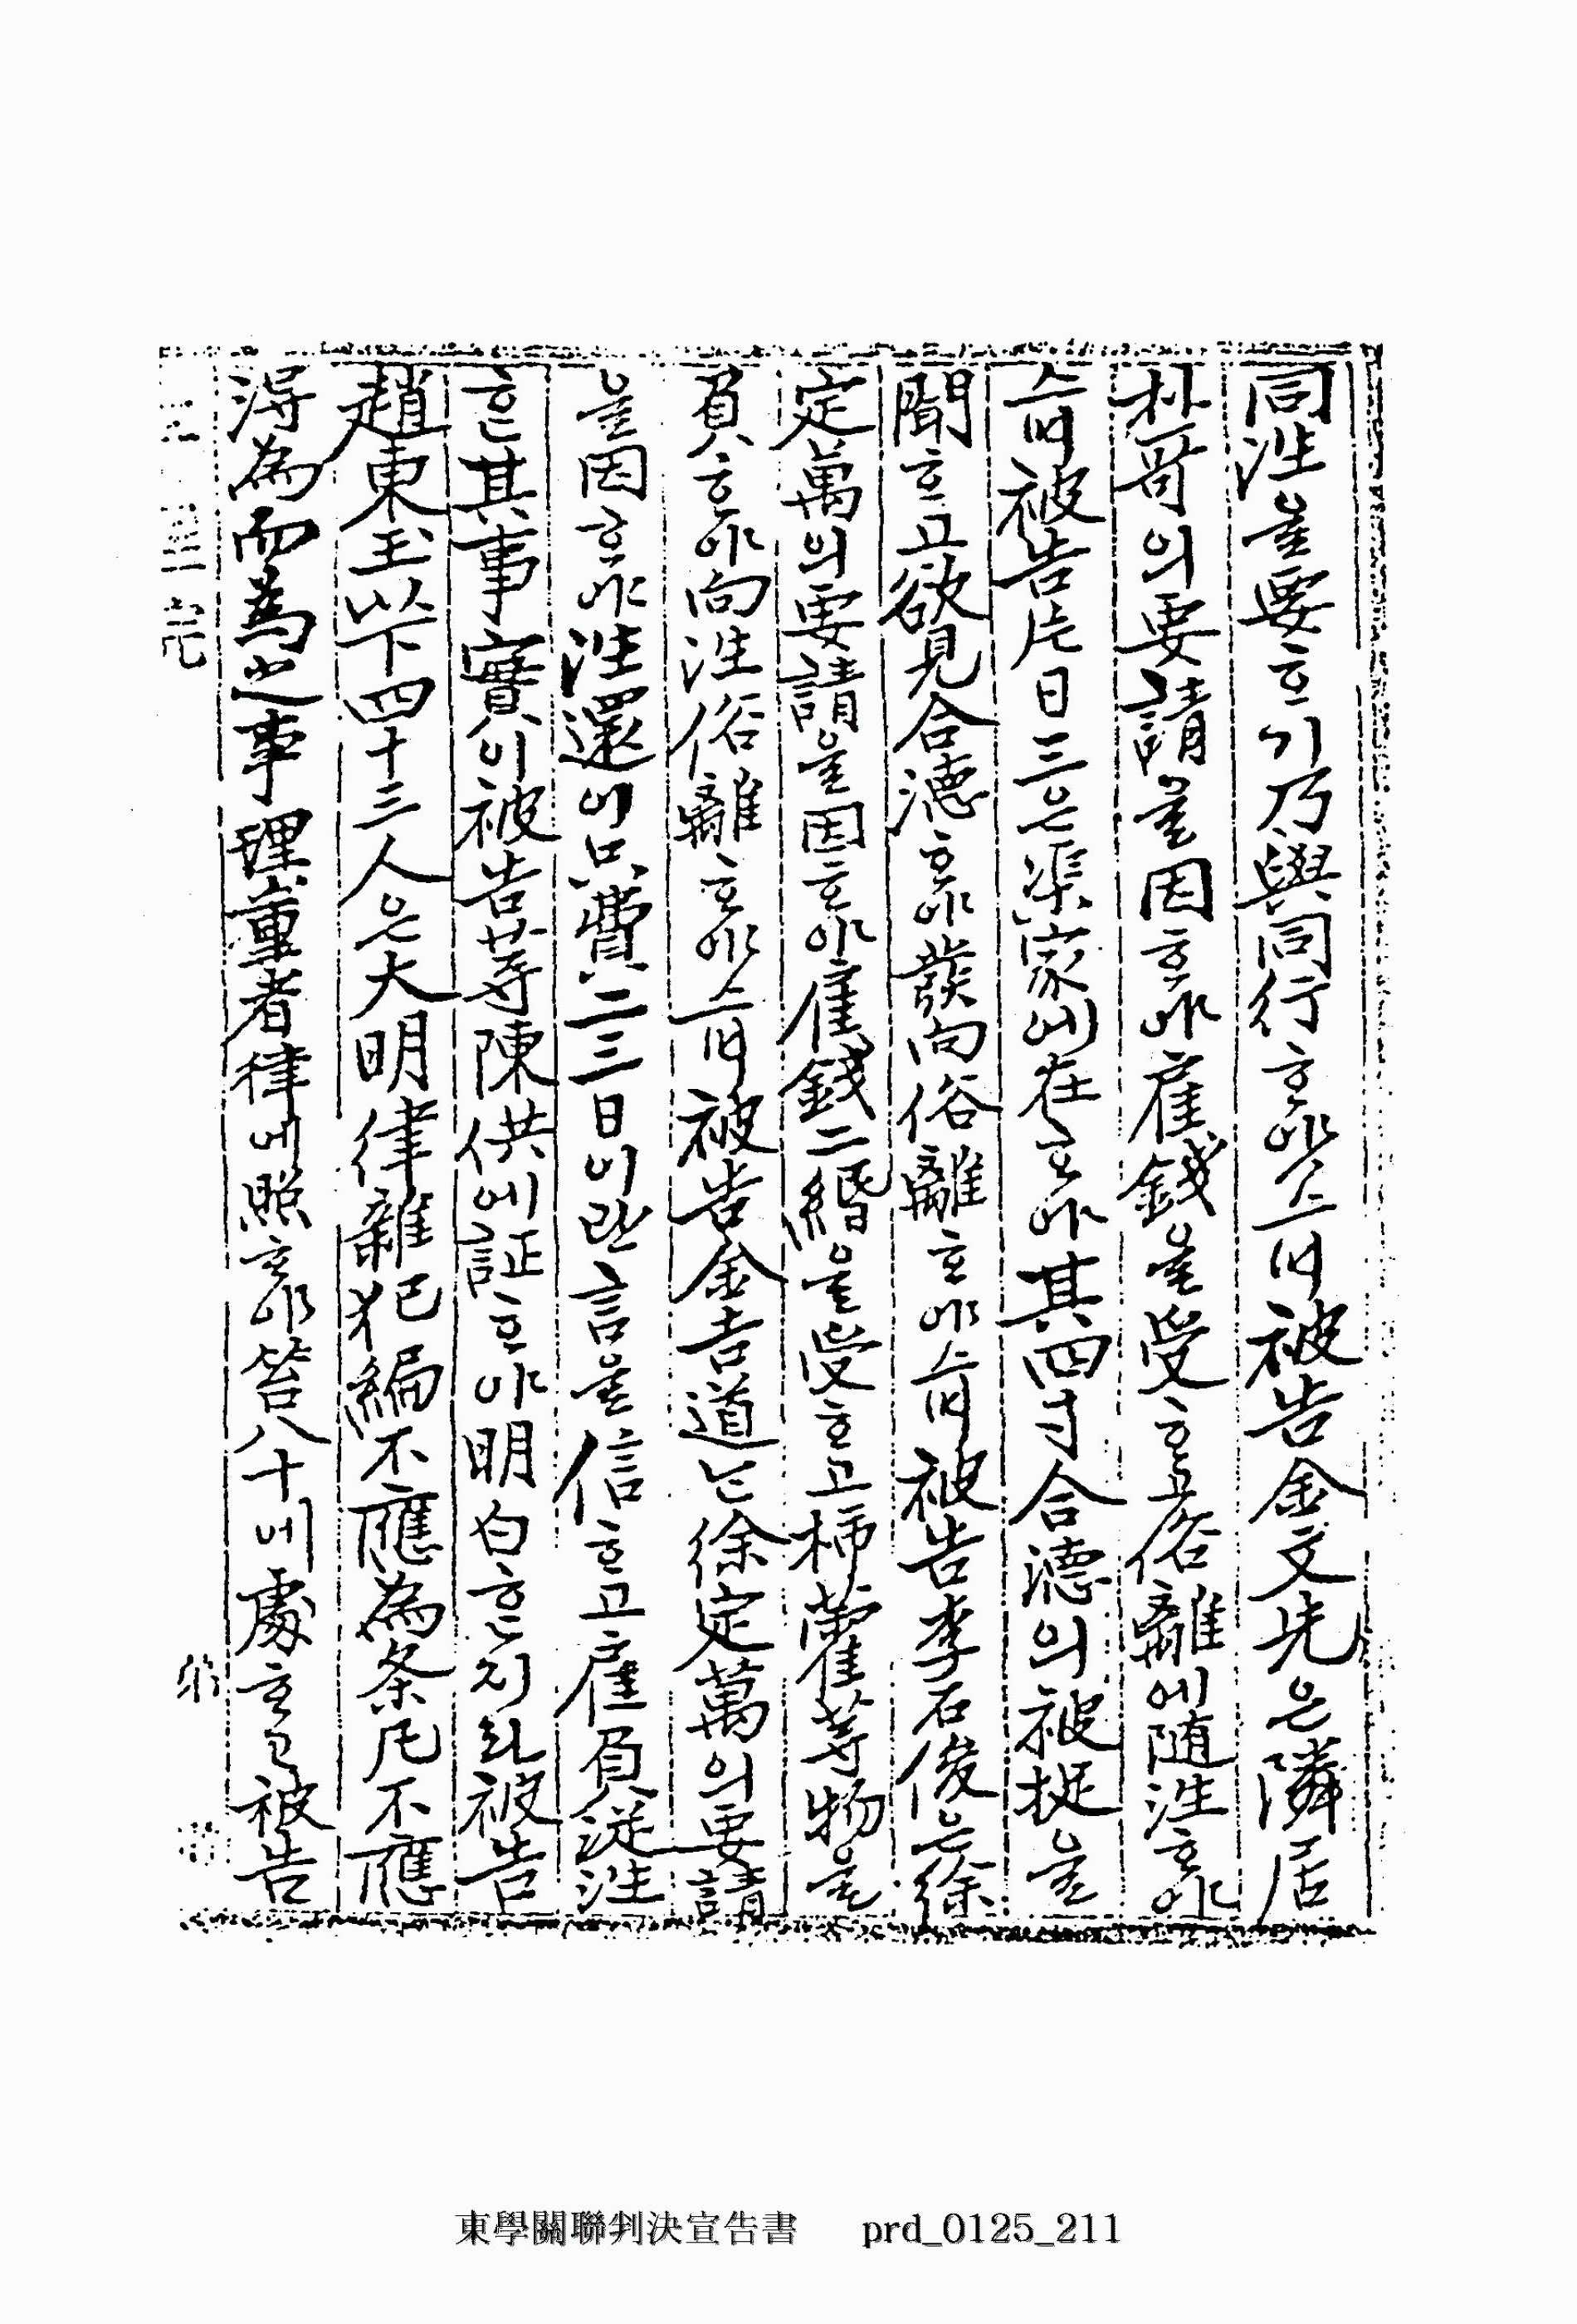 同徃을要ᄒᆞ기乃與同行ᄒᆞ야스며被告金文先은隣居
朴哥의要請을因ᄒᆞ야雇錢을受ᄒᆞ고俗離에随徃ᄒᆞ야
스며被告片日三은渠家에在ᄒᆞ야其四寸合德의被捉을
聞ᄒᆞ고欲見合德ᄒᆞ야發向俗離ᄒᆞ야스며被告李石俊은徐
定萬의要請을因ᄒᆞ야雇錢二緡을受ᄒᆞ고柿藿等物을
負ᄒᆞ야向徃俗離ᄒᆞ야스며被告金吉道는徐定萬의要請
을因ᄒᆞ야徃還에只費二三日이란言을信ᄒᆞ고雇負從徃
ᄒᆞᆫ其事實이被告等陳供에証ᄒᆞ야明白ᄒᆞᆫ지라被告
趙東玉以下四十三人은大明律雜犯編不應為条凡不應
淂為而為之事理重者律에照ᄒᆞ야笞八十에處ᄒᆞ고被告